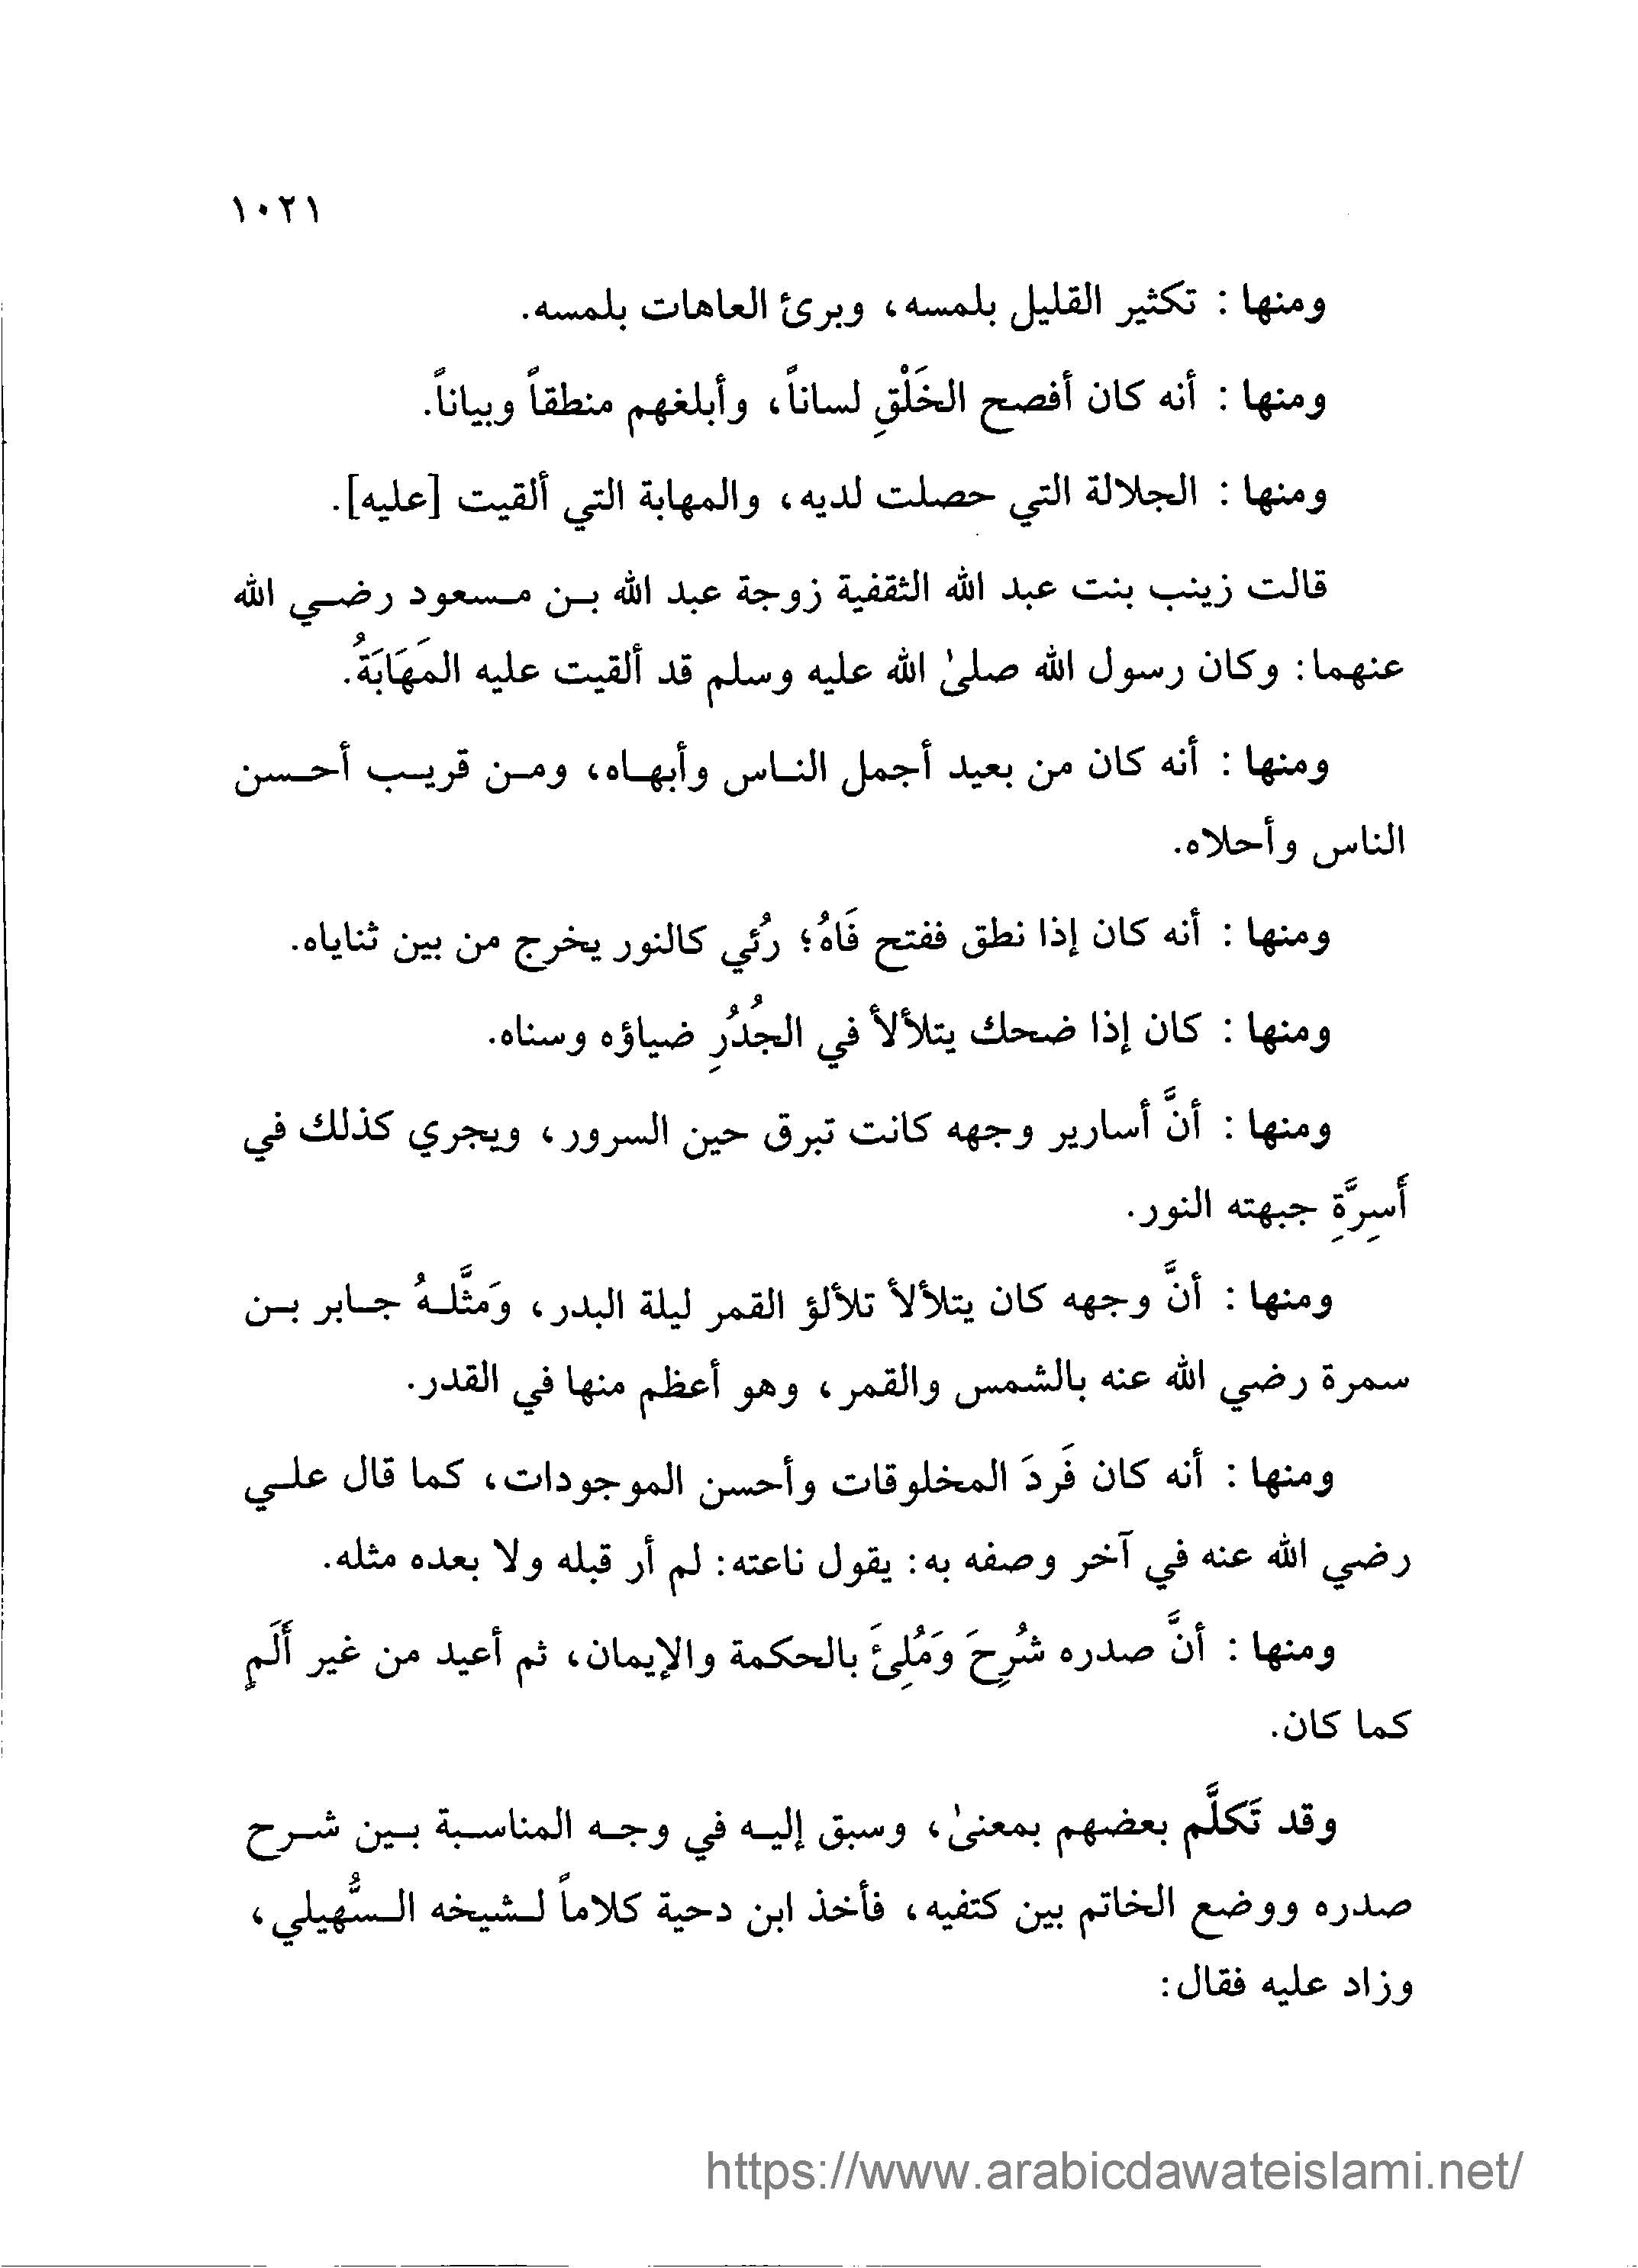 ١٠٢١
ومنها : تكثير القليل بلمسه، وبرئ العاهات بلمسه.
ومنها : أنه كان أفصح الخَلْقِ لساناً، وأبلغهم منطقاً وبياناً.
ومنها : الجلالة التي حصلت لديه، والمهابة التي ألقيت [عليه].
قالت زينب بنت عبد الله الثقفية زوجة عبد الله بـن مـسعود رضـي الله
عنهما: وكان رسول الله صلىٰ الله عليه وسلم قد ألقيت عليه المَهَابَةُ.
ومنها : أنه كان من بعيد أجمل النـاس وأبهـاه، ومـن قريـب أحـسن
الناس وأحلاه.
ومنها : أنه كان إذا نطق ففتح فَاهُ؛ رُئي كالنور يخرج من بين ثناياه.
ومنها : كان إذا ضحك يتلألأ في الجُدُرِ ضياؤه وسناه.
ومنها : أنَّ أسارير وجهه كانت تبرق حين السرور، ويجري كذلك في
أَسِرَّةِ جبهته النور.
ومنها : أنَّ وجهه كان يتلألأ تلألؤ القمر ليلة البدر، وَمثَّلـهُ جـابر بـن
سمرة رضي الله عنه بالشمس والقمر، وهو أعظم منها في القدر.
ومنها : أنه كان فَردَ المخلوقات وأحسن الموجودات، كما قال علـي
رضي الله عنه في آخر وصفه به: يقول ناعته: لم أر قبله ولا بعده مثله.
ومنها : أنَّ صدره شُرِحَ وَمُلِئَ بالحكمة والإيمان، ثم أعيد من غير أَلَمٍ
كما كان.
وقد تَكلَّم بعضهم بمعنىٰ، وسبق إليـه في وجـه المناسـبة بـين شـرح
صدره ووضع الخاتم بين كتفيه، فأخذ ابن دحية كلاماً لـشيخه الـسُّهيلي،
وزاد عليه فقال:
https://www.arabicdawateislami.net/